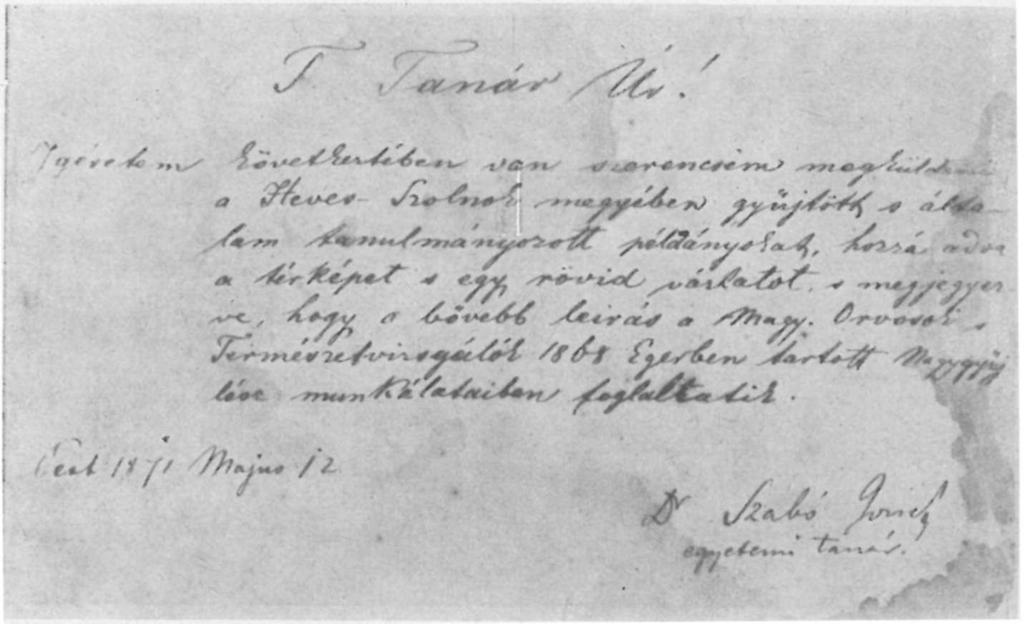 T. Tanár Úr!
Igéretem következtében van szerencsém megküldeni
a Heves-Szolnok megyében gyűjtött s álta-
lam tanulmányozott példányokat, hozzá adva
a térképet s egy rövid vázlatot, s megjegyez
ve, hogy a bővebb leirás a Magy. Orvosok s
Természetvizsgálók 1868 Egerben tartott Nagygyü
lése munkálataiben foglaltatik.
Pest 1871 Majus 12
Dr Szabó József
egyetemi tanár.